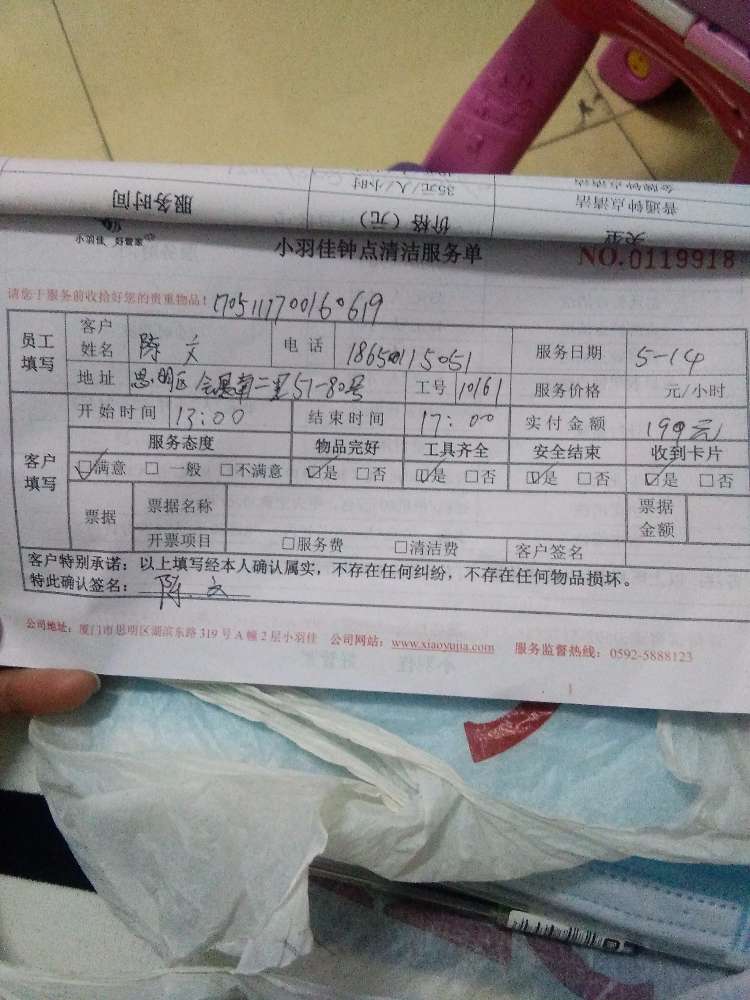 服务时间
价格（元）
35元/人/小时
普通钟点清洁
金牌钟点清洁
类型
小羽佳 好管家
小羽佳钟点清洁服务单
NO.0119918
请您于服务前收拾好您的贵重物品！
员工填写 客户姓名 陈文 电话 18650115051 服务日期 5-14
地址 思明区 51-80号 工号 10161 服务价格 元/小时
客户填写 开始时间 13:00 结束时间 17:00 实付金额 199元
服务态度 物品完好 工具齐全 安全结束 收到卡片
☑满意 □一般 □不满意 ☑是 □否 ☑是 □否 ☑是 □否 ☑是 □否
票据 票据名称 票据金额
开票项目 □服务费 □清洁费 客户签名
客户特别承诺：以上填写经本人确认属实，不存在任何纠纷，不存在任何物品损坏。
特此确认签名：陈文
公司地址：厦门市思明区湖滨东路319号A幢2层小羽佳 公司网站：www.xiaoyujia.com 服务监督热线：0592-5888123